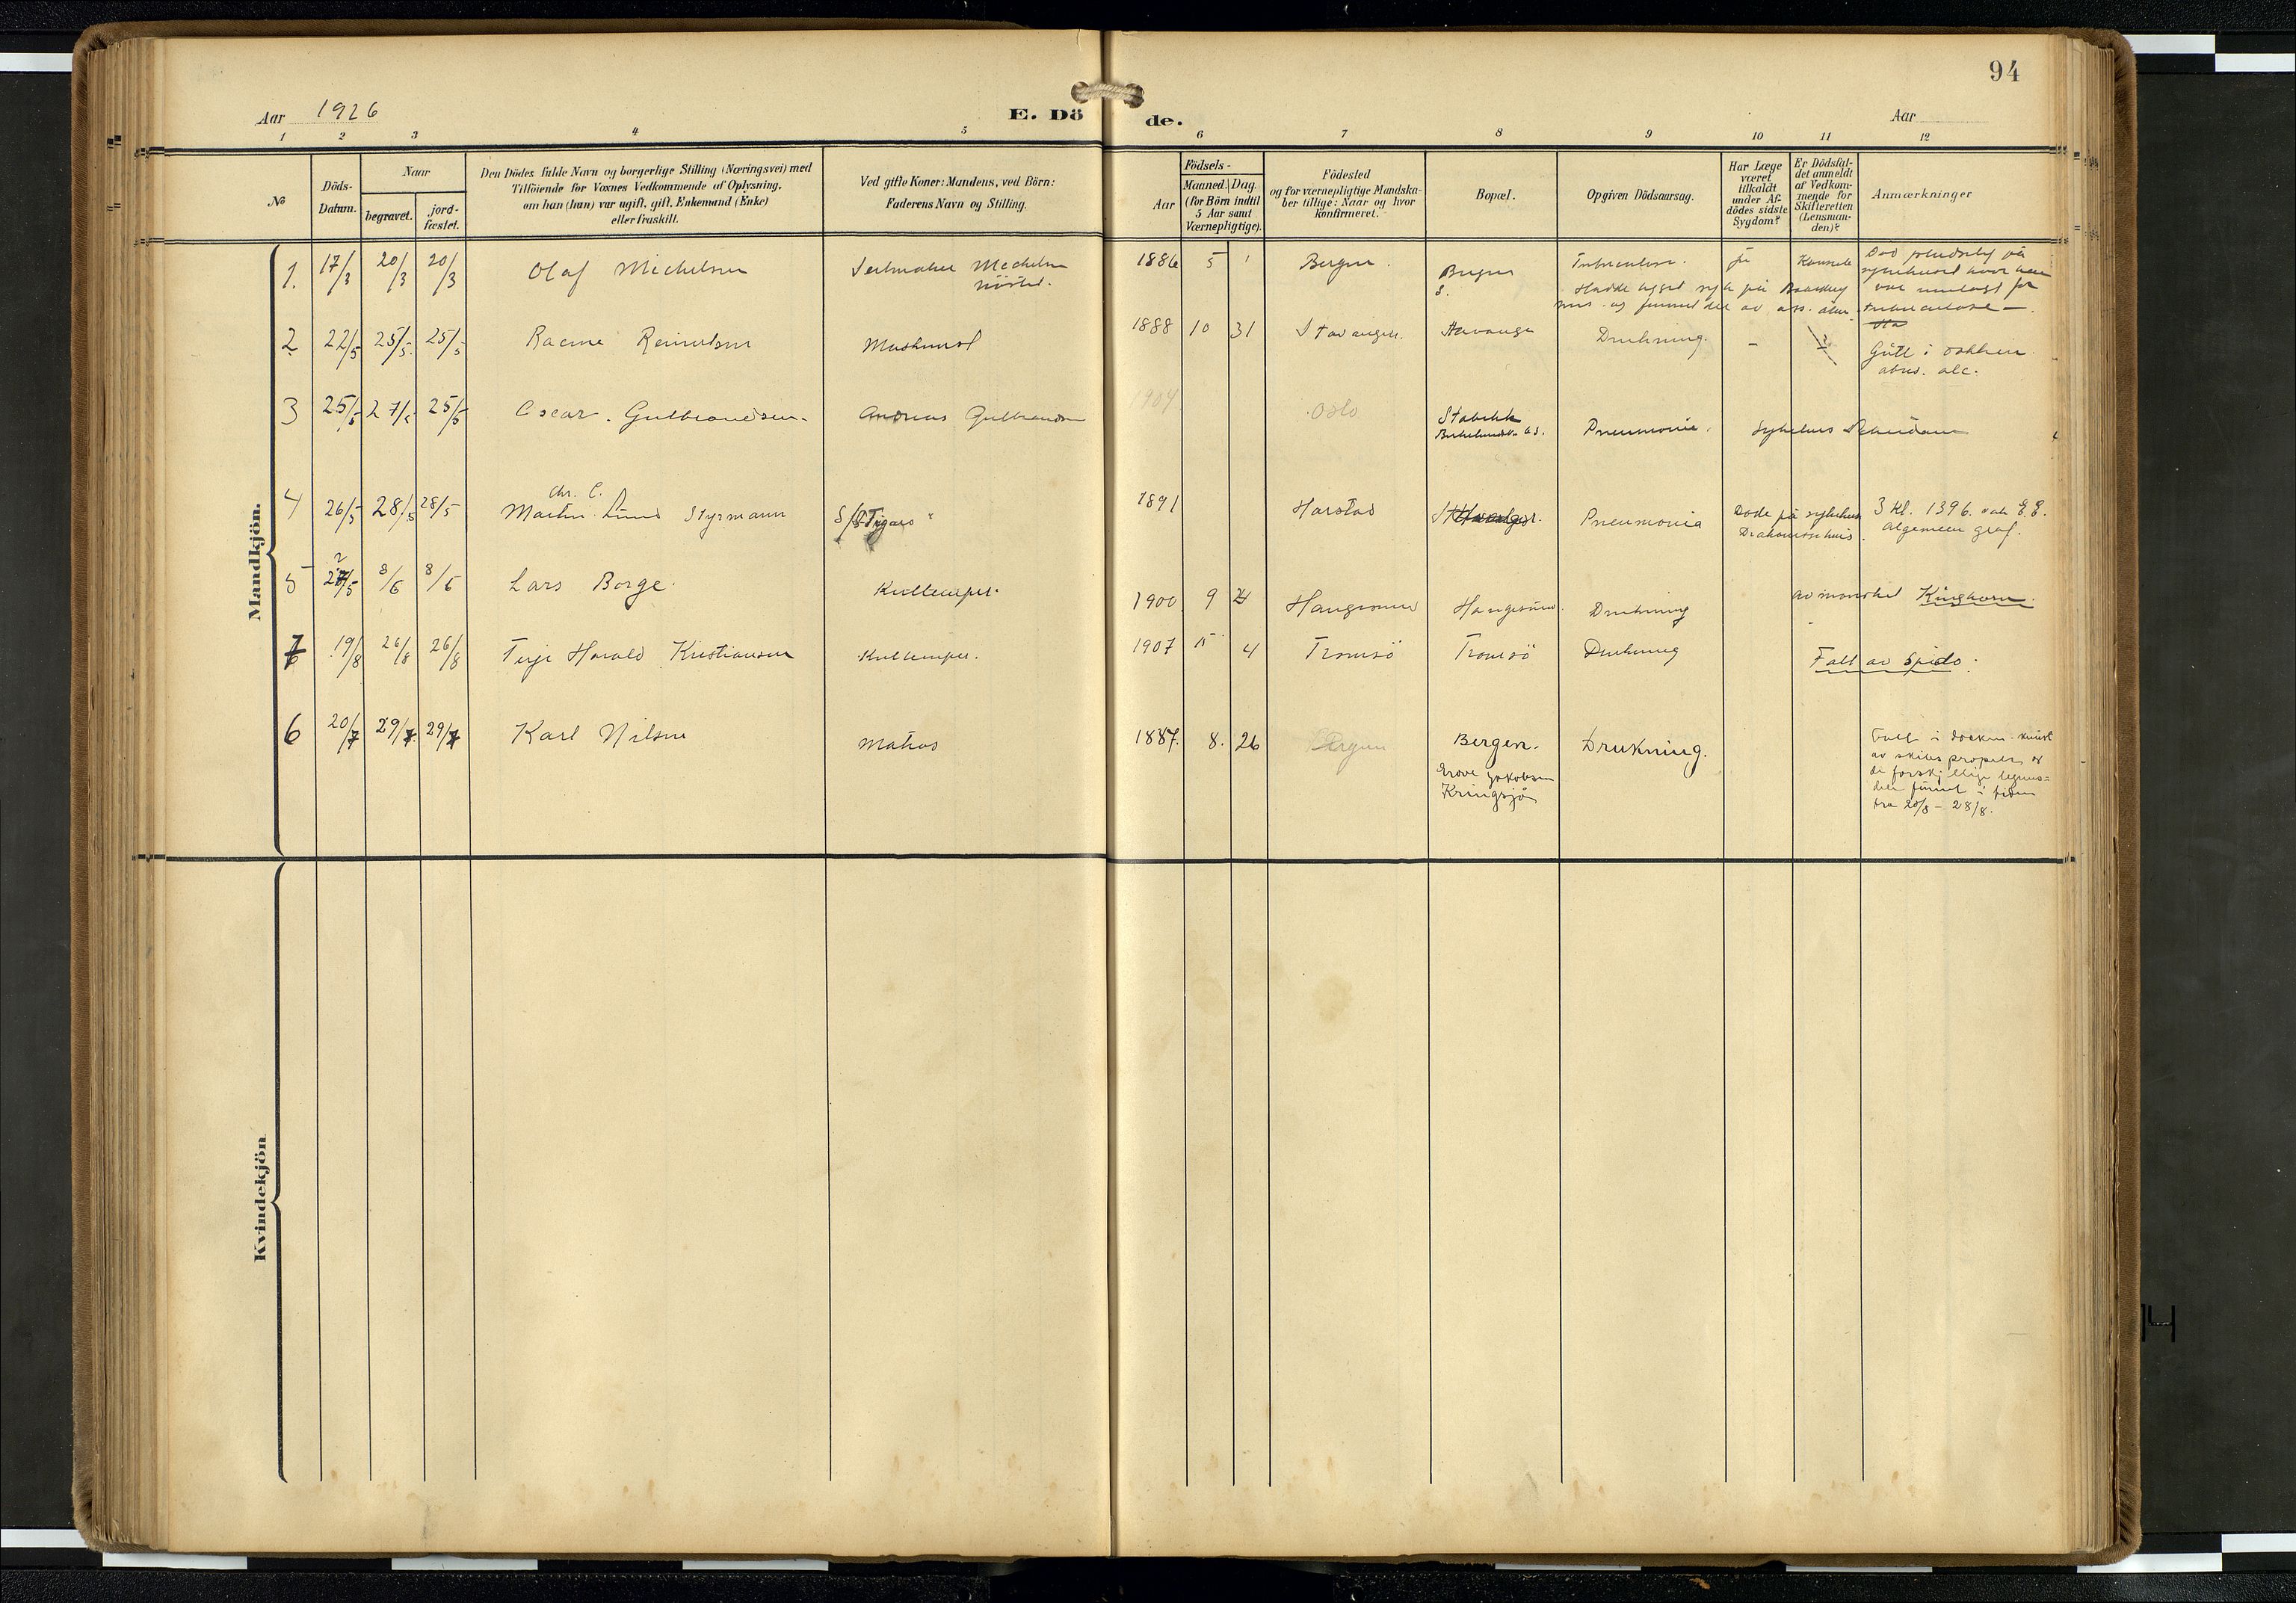 94
Aar 1926
E. Döde.
Aar
1 2 3 4 5 6 7 8 9 10 11 12
№
Döds-
Datum.
Naar
begravet.
jord-
fæstet.
Den Dödes fulde Navn og borgerlige Stilling (Næringsvei) med
Tilföiende for Voxnes Vedkommende af Oplysning,
om han (hun) var ugift, gift, Enkemand (Enke)
eller fraskilt.
Ved gifte Koner: Mandens, ved Börn:
Faderens Navn og Stilling.
Aar
Födsels-
Maaned. Dag.
(for Börn indtil
5 Aar samt
Værnepligtige).
Födested
og for værnepligtige Mandska-
ber tillige: Naar og hvor
konfirmeret.
Bopæl.
Opgiven Dödsaarsag.
Har Læge
været
tilkaldt
under Af-
dödes sidste
Sygdom?
Er Dödsfal-
det anmeldt
af Vedkom-
mende for
Skifteretten
(Lensman-
den)?
Anmærkninger
Mandkjön.
1. 17/3 20/3 20/3 Olaf Michelsen
1886 5 1 Bergen. Bergen
S.
Tuberculose. ja
Hadde ligget syk på
Död pludselig på
sykehuset hvor han
var innlagt for
tuberculose
2 22/5 25/5 25/5 Reinertsen
1888 10 31 Stavanger. Stavanger Drukning. -
i dokken
abus. alc.
3 25/5 27/5 25/5 Oscar. Gulbrandsen. Andreas Gulbrandsen
1904 Oslo Stabekk
Pneumonia. Sykehus Schiedam
4 26/5 28/5 28/5 Chr. C.
Martin Lund Styrmann S/S "Figaro"
1891 Harstad Pneumonia
Döde på sykehus
3 Kl. 1396. vak E.E.
algemeen graf.
5 8/6 8/6 Lars Borge. Kullemper.
1900 9 Haugesund Haugesund. Drukning av Kinghorn.
7 19/8 26/8 26/8 Terje Harald Kristiansen Kullemper.
1907 4 Tromsö Tromsö Drukning Falt av Spido.
6 20/7 29/7 29/7 Karl Nilsen Matros
1887. 8. 26 Bergen Bergen. Drukning.
Grove Jakobsen
Kringsjå
Falt i docken. knust
av skibets propeller og
de forskjellige legems=
deler funnet i tiden
fra 20/8 - 28/8.
Kvindekjön